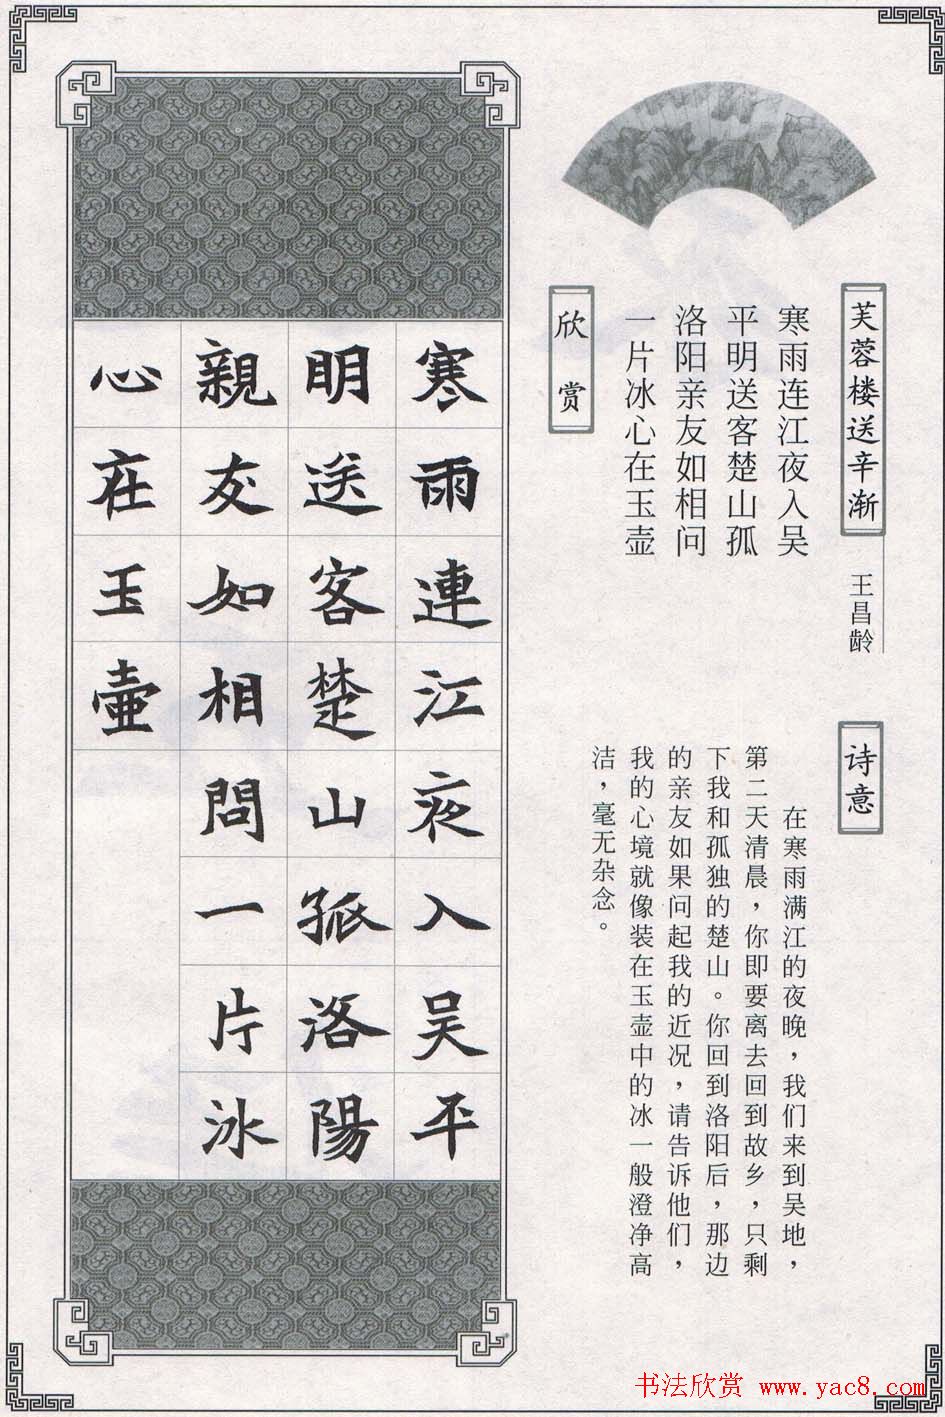 芙蓉楼送辛渐
王昌龄
寒雨连江夜入吴
平明送客楚山孤
洛阳亲友如相问
一片冰心在玉壶
诗意
在寒雨满江的夜晚，我们来到吴地，
第二天清晨，你即要离去回到故乡，只剩
下我和孤独的楚山。你回到洛阳后，那边
的亲友如果问起我的近况，请告诉他们，
我的心境就像装在玉壶中的冰一般澄净高
洁，毫无杂念。
欣赏
寒雨連江夜入吴平
明送客楚山孤洛陽
親友如相問一片冰
心在玉壺
书法欣赏 www.yac8.com